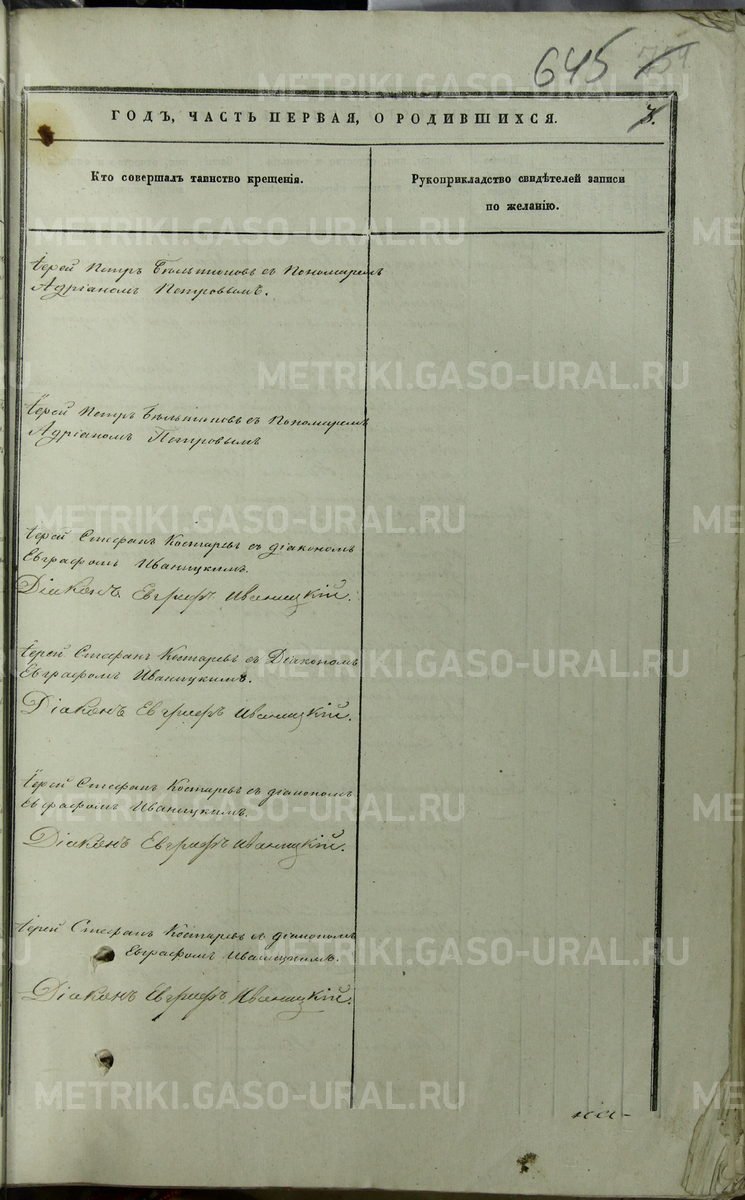 645
ГОДЪ, ЧАСТЬ ПЕРВАЯ, О РОДИВШИХСЯ.
Кто совершалъ таинство крещенія.
Рукоприкладство свидѣтелей записи
по желанію.
Іерей Петръ съ Пономаремъ
Адріаномъ Петровымъ.
Іерей Петръ съ Пономаремъ
Адріаномъ Петровымъ
Іерей Стефанъ Костаревъ съ діакономъ
Евграфомъ Иваницкимъ.
Діаконъ Евграфъ Иваницкій.
Іерей Стефанъ Костаревъ съ Діакономъ
Евграфомъ Иваницкимъ.
Діаконъ Евграфъ Иваницкій.
Іерей Стефанъ Костаревъ съ діакономъ
Евграфомъ Иваницкимъ.
Діаконъ Евграфъ Иваницкій.
Іерей Стефанъ Костаревъ съ діакономъ
Евграфомъ Иваницкимъ.
Діаконъ Евграфъ Иваницкій.
METRIKI.GASO-URAL.RU